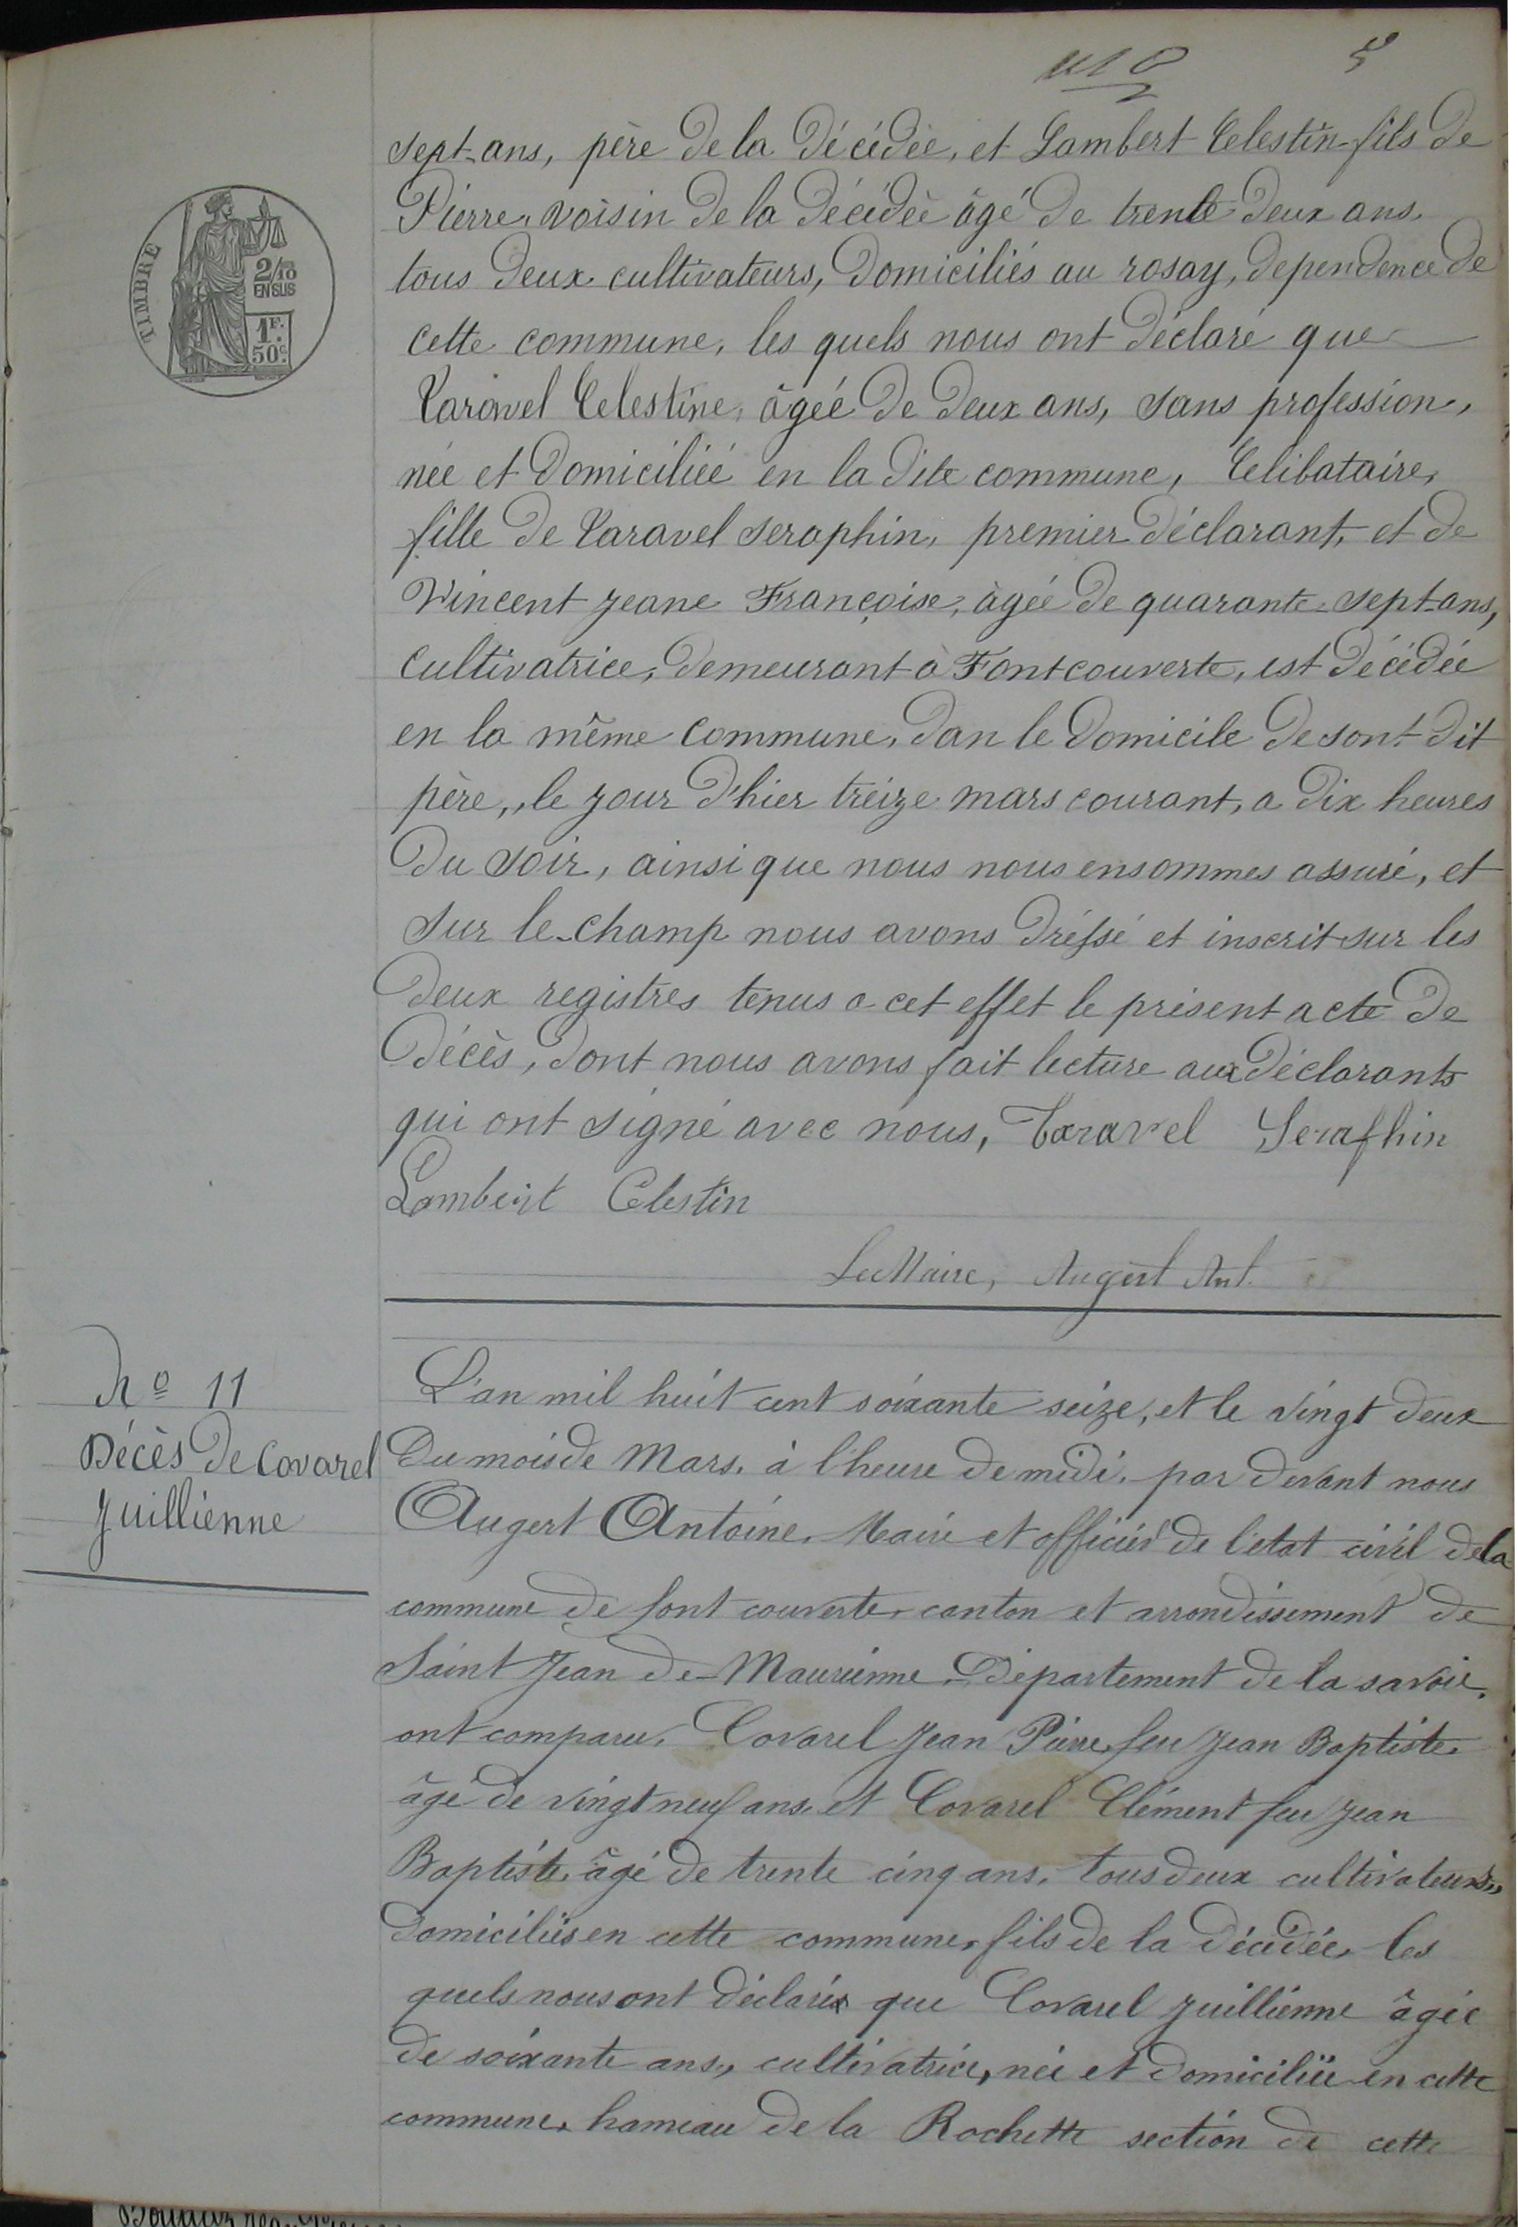 5
sept-ans, père de la décédée, et Lambert Celestin fils de
Pierre, voisin de la décédée âgé de trente deux ans.
tous deux cultivateurs, domiciliés au rosay, dependence de
cette commune, les quels nous ont déclaré que
Taravel Celestine, âgéé de deux ans, sans profession,
née et domiciliéé en la dite commune, Celibataire,
fille de Taravel Seraphin, premier déclarant, et de
Vincent Jeane Françoise, âgée de quarante-sept-ans,
Cultivatrice, demeurant à Fontcouverte, est décédée
en la même commune, dan le domicile de sont dit
père, le jour d'hier treize mars courant, a dix heures
du soir, ainsi que nous nous en sommes assuré, et
sur le-champ nous avons dréssé et inscrit sur les
deux registres tenus a cet effet le présent acte de
décès, dont nous avons fait lecture aux déclarants
qui ont signé avec nous, Taravel Serafhin
Lambert Celestin
Le Maire, Augert Ant.
TIMBRE
2/10
EN SUS
1F.
50c.
No 11
Décès de Covarel
Juillienne
L'an mil huit cent soixante seize, et le vingt deux
du mois de Mars, à l'heure de midi, par devant nous
Augert Antoine, Maire et officier de l'état civil de la
commune de font couverte, canton et arrondissement de
Saint Jean de Maurienne, Département de la savoie,
ont comparu, Covarel Jean Pierre, feu Jean Baptiste
âgé de vingt neuf ans, et Covarel Clément feu Jean
Baptiste, âgé de trente cinq ans, tous deux cultivateurs,
domiciliés en cette commune, fils de la décédée, les
quels nous ont déclaré que Covarel Juillienne âgée
de soixante ans, cultivatrice, née et domiciliée en cette
commune, hameau de la Rochette section de cette